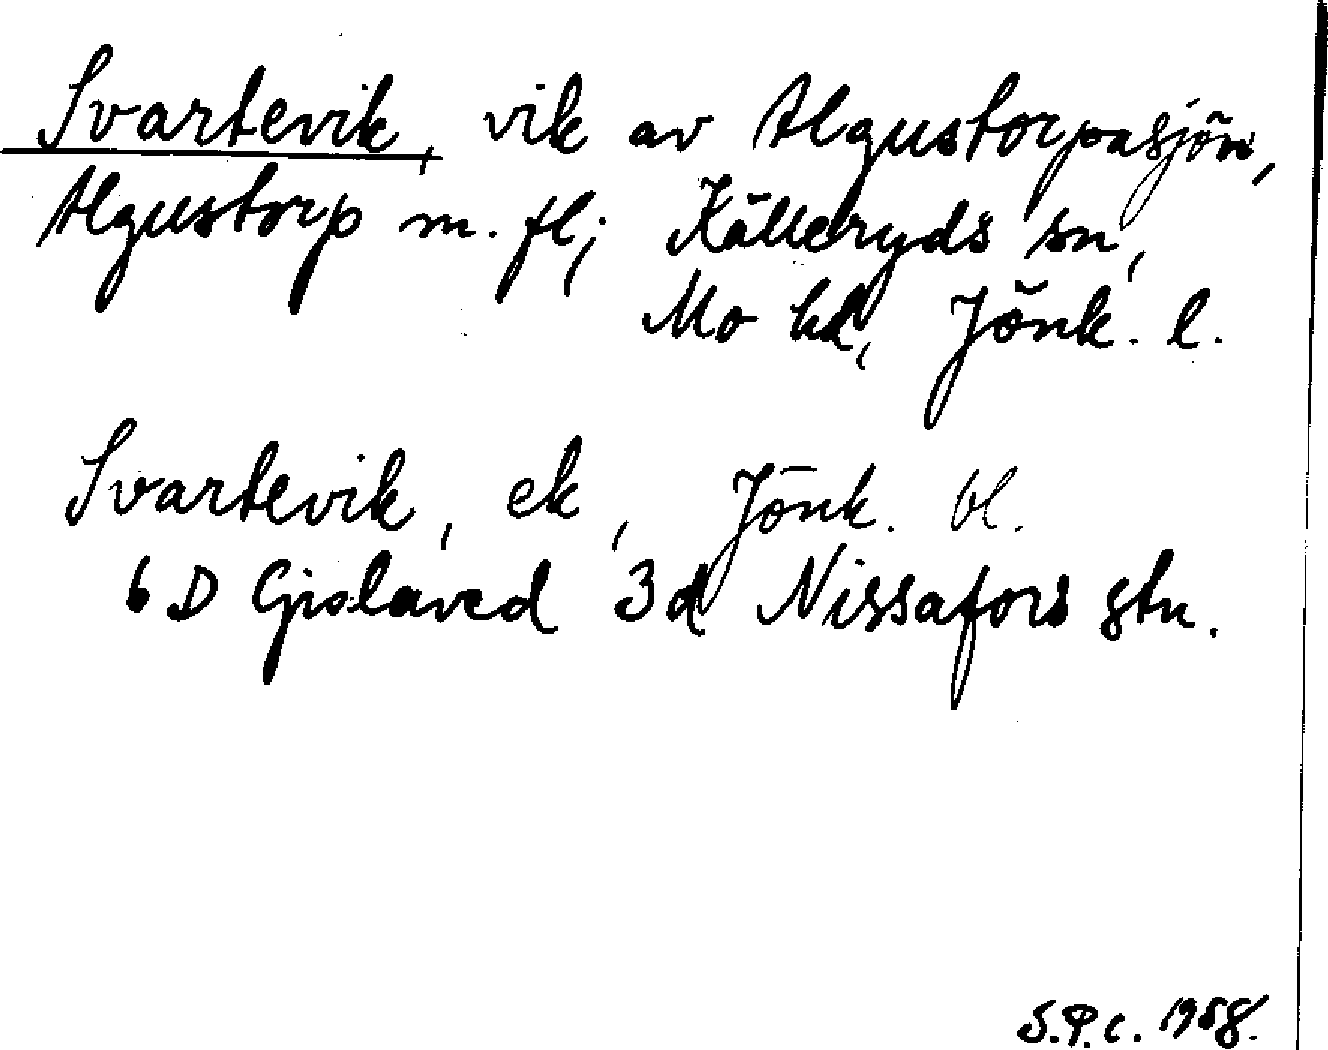 Svartevik, vik av Algustorpasjön,
Algustorp m. fl; Källeryds sn,
Mo hd, Jönk. l.
Svartevik, ek, Jönk. bl.
6 D Gislaved 3d Nissafors stn.
S.P.c. 1958.